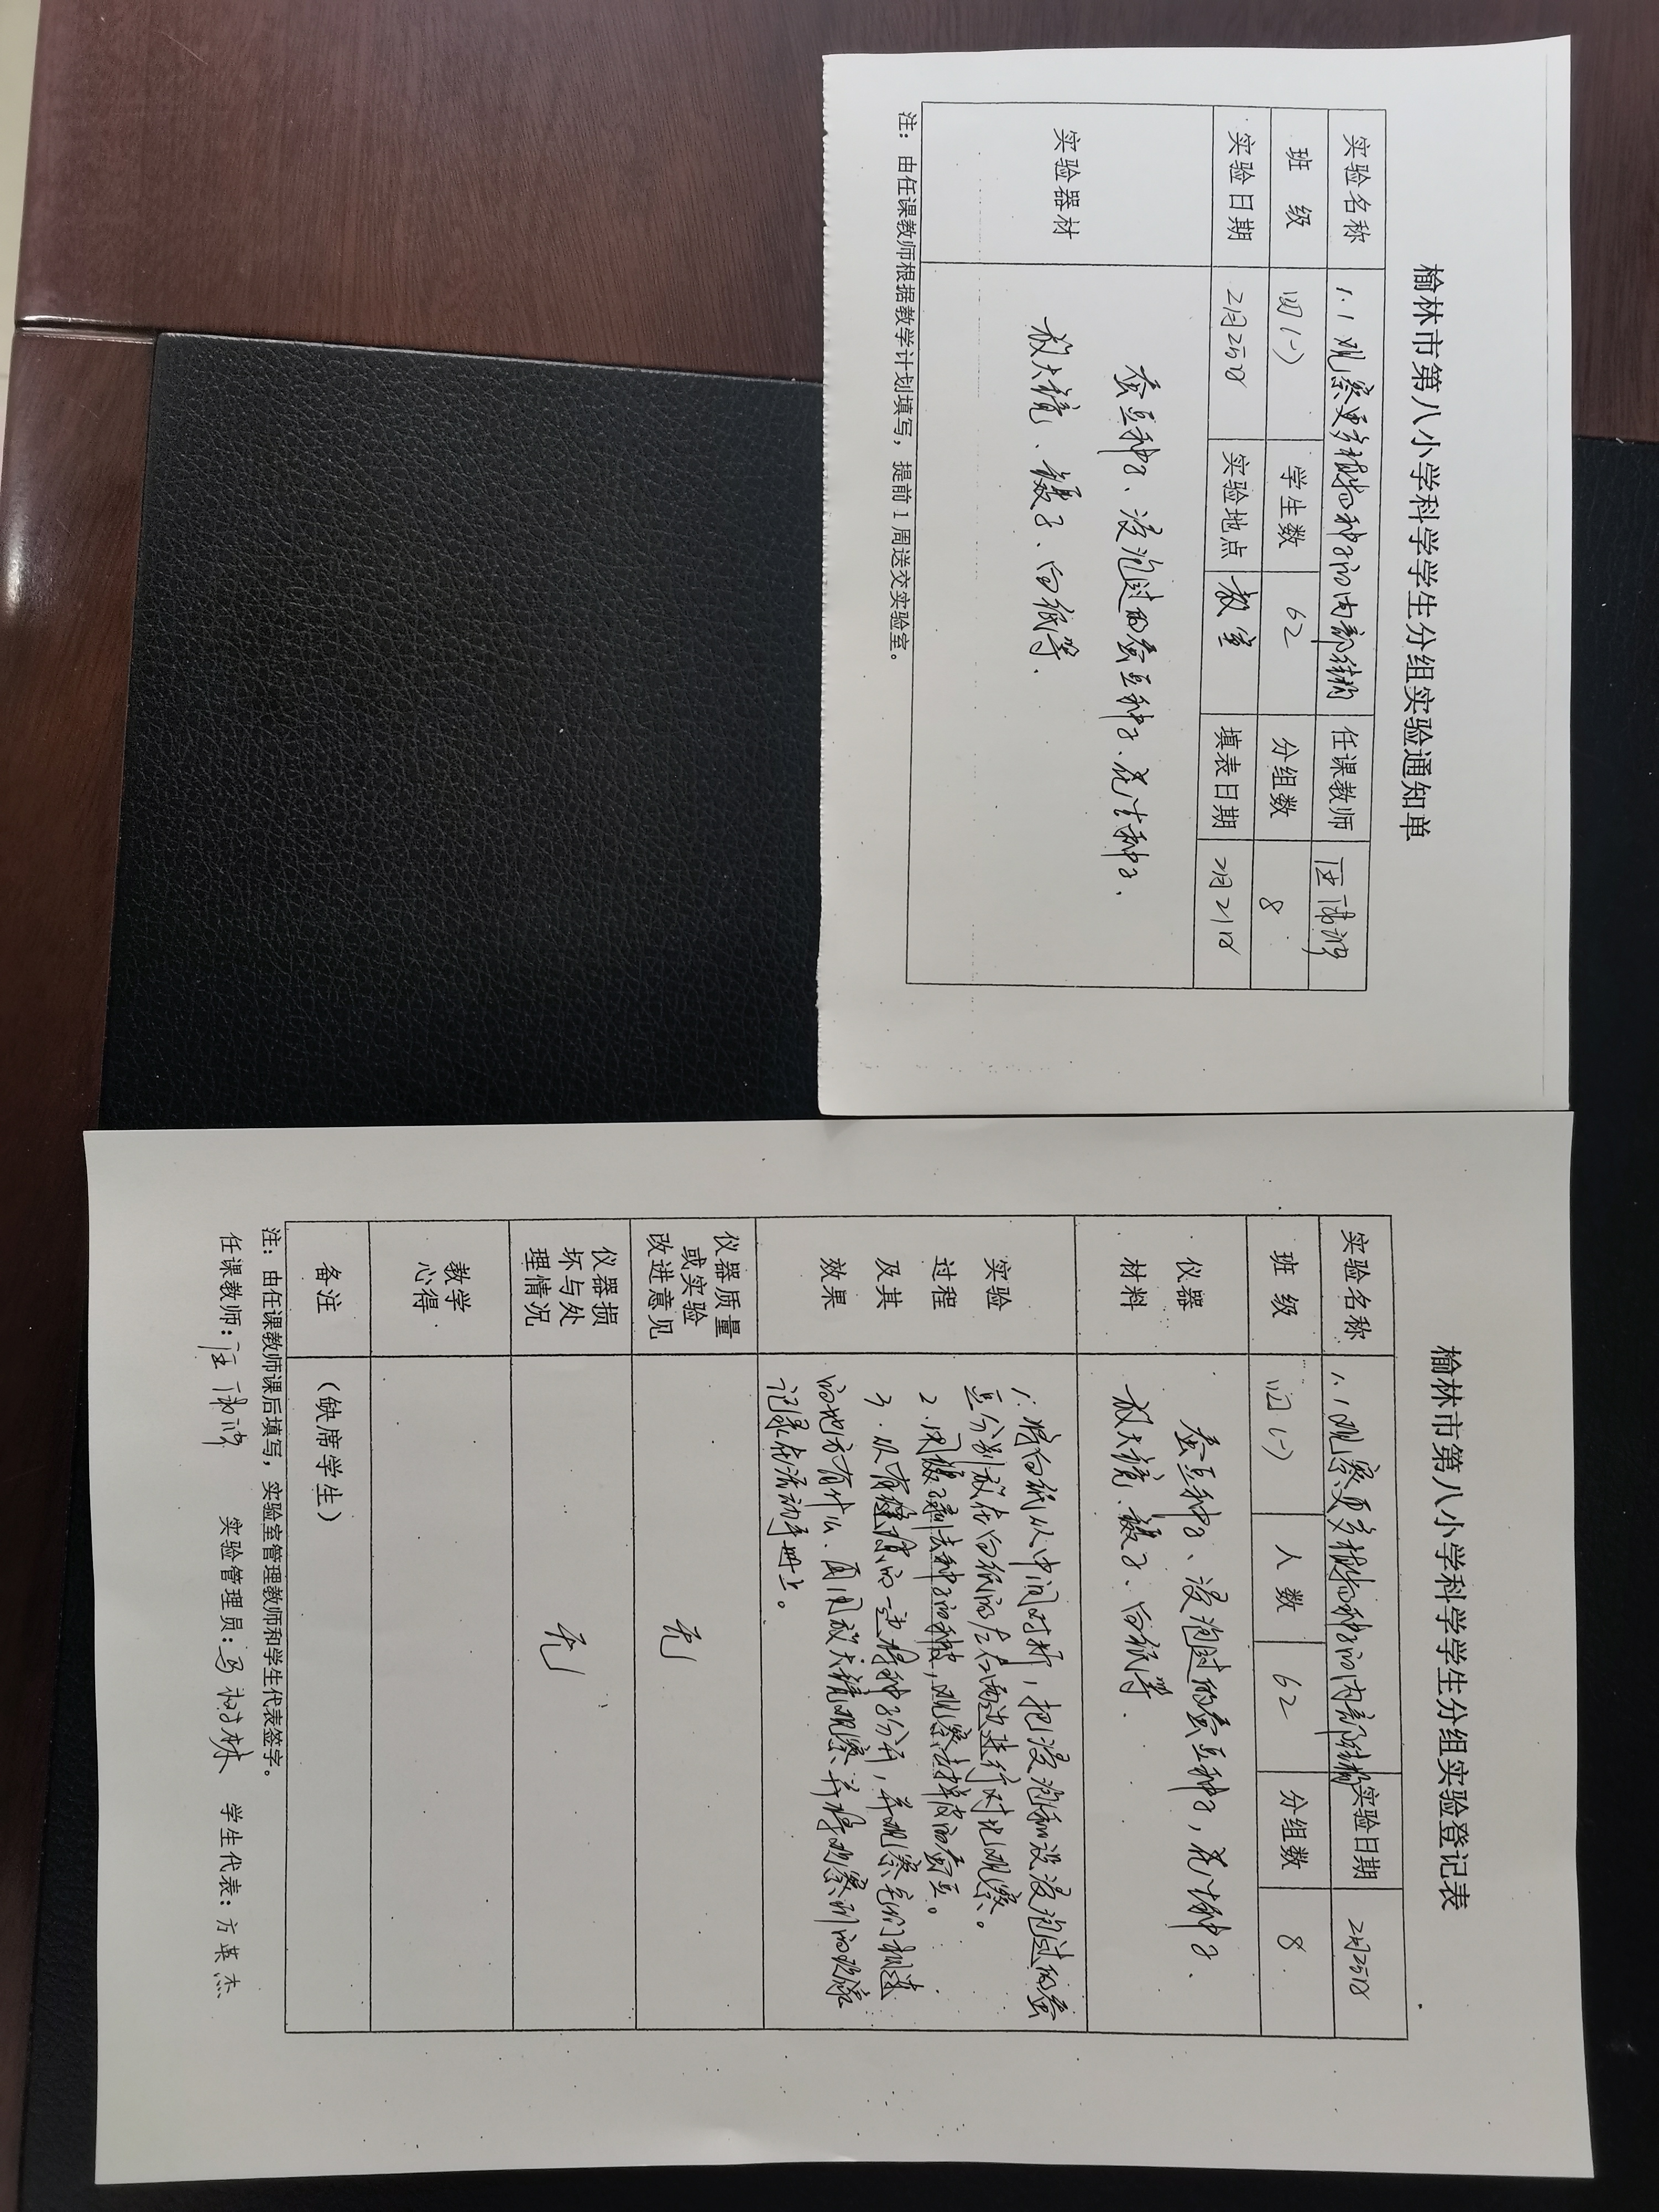 榆林市第八小学科学学生分组实验通知单
实验名称 1.1观察更多植物种子的内部结构 任课教师 汪
班 级 四(一) 学生数 62 分组数 8
实验日期 2月25日 实验地点 教室 填表日期 2月21日
实验器材
蚕豆种子、浸泡过的蚕豆种子、花生种子、
放大镜、镊子、白纸等.
注：由任课教师根据教学计划填写，提前1周送交实验室。
榆林市第八小学科学学生分组实验登记表
实验名称 1.1观察更多植物种子的内部结构 实验日期 2月25日
班 级 四(一) 人 数 62 分组数 8
仪器
材料
蚕豆种子、浸泡过的蚕豆种子，花生种子.
放大镜、镊子、白纸等.
实验
过程
及其
效果
1.将白纸从中间对折，把浸泡和没浸泡过的蚕
豆分别放在白纸的左右两边进行对比观察。
2.用镊子剥去种子的种皮，观察去掉皮的蚕豆。
3.从有缝隙的一边将种子分开，并观察它们相连
的地方有什么、再用放大镜观察并将观察到的现象
记录在活动手册上。
仪器质量
或实验
改进意见
无
仪器损
坏与处
理情况
无
教学
心得
备注 （缺席学生）
注：由任课教师课后填写，实验室管理教师和学生代表签字。
任课教师：汪 实验管理员：马 林 学生代表：方英杰